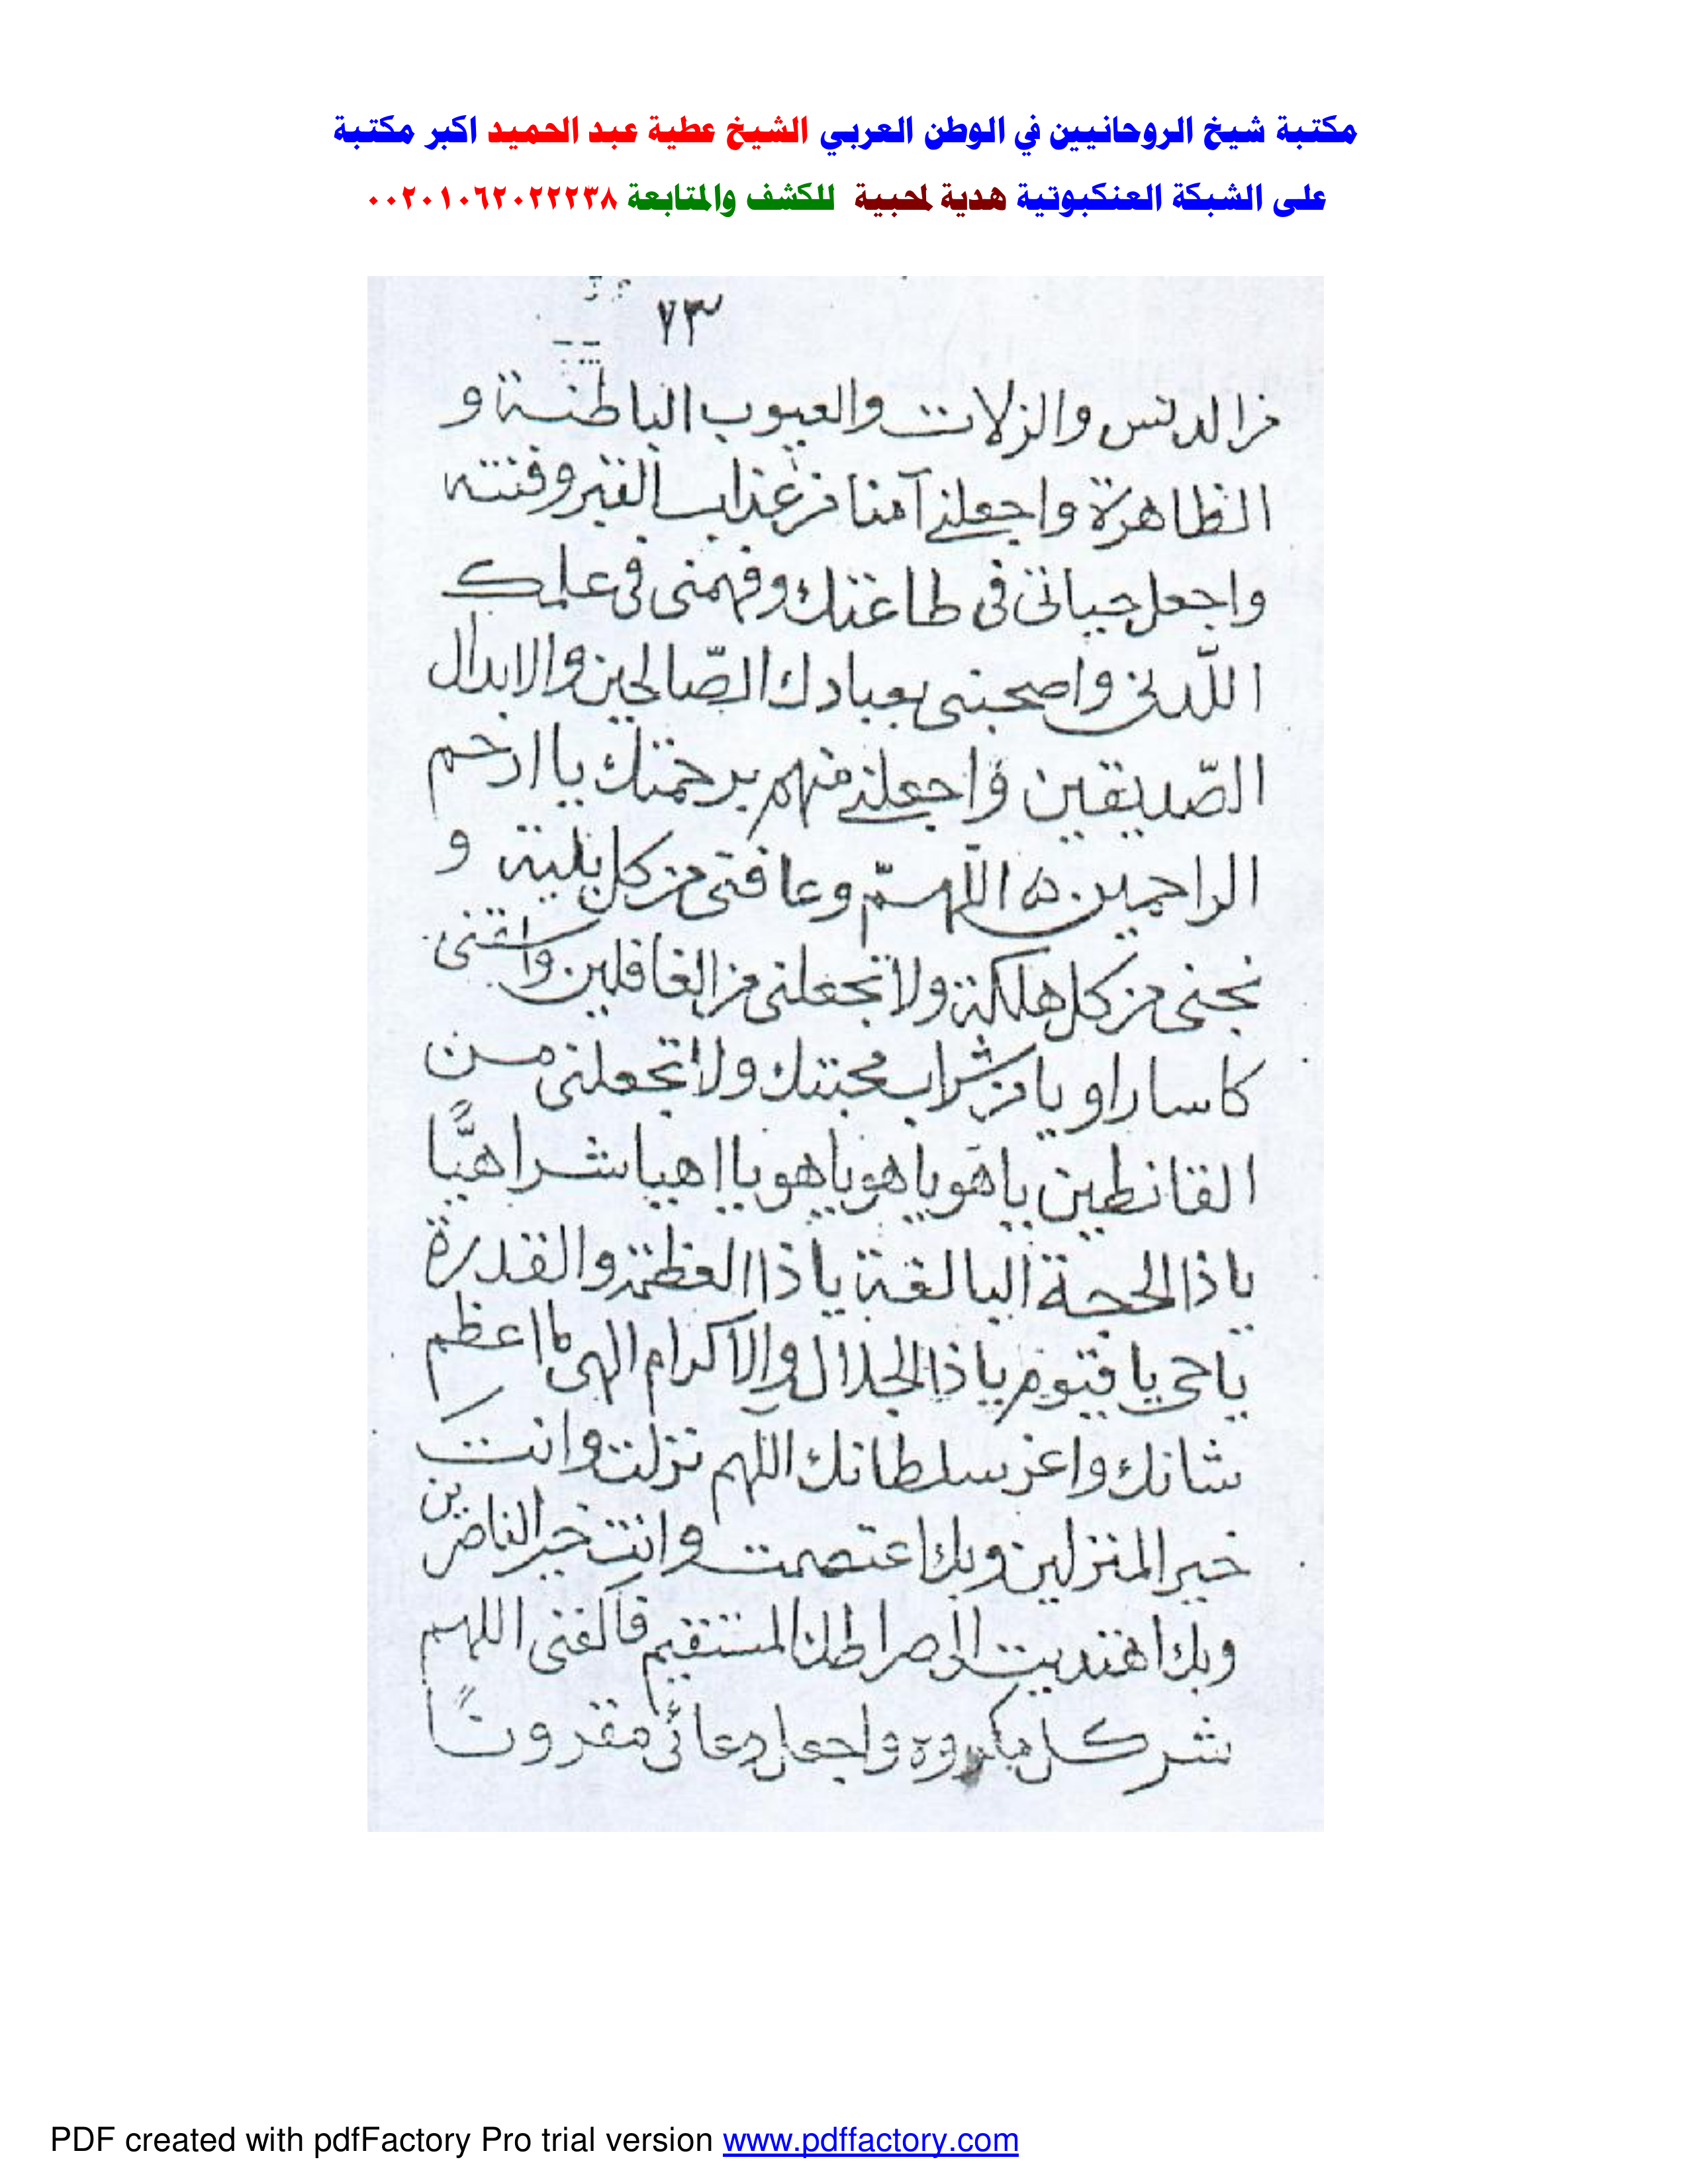 مكتبة شيخ الروحانيين في الوطن العربي الشيخ عطية عبد الحميد اكبر مكتبة
على الشبكة العنكبوتية هدية لمحبية للكشف والمتابعة ٠٠٢٠١٠٦٢٠٢٢٢٣٨
٧٣
من الدنس والزلات والعيوب الباطنة و
الظاهرة واجعلني آمنا من عذاب القبر وفتنته
واجعل حياتى فى طاعتك وفهمنى فى علمك
اللّدنى واصحبنى بعبادك الصّالحين والابدال
الصّديقين واجعلنى منهم برحمتك يا ارحم
الراحمين ه اللّهمّ وعافنى من كل بلية و
نجنى من كل هلكة ولا تجعلنى من الغافلين واسقنى
كاسا راويا من شراب محبتك ولا تجعلنى من
القانطين ياهو ياهو ياهو يا اهيا شراهيًّا
ياذا الحجة البالغة ياذا العظمة والقدرة
ياحى ياقيوم ياذا الجلال والاكرام الهى ما اعظم
شانك واعز سلطانك اللهم نزلت وانت
خير المنزلين وبك اعتصمت وانت خير الناصرين
وبك اهتديت الى صراطك المستقيم فاكفنى اللهم
شر كل مكروه واجعل دعائى مقرونًا
PDF created with pdfFactory Pro trial version www.pdffactory.com